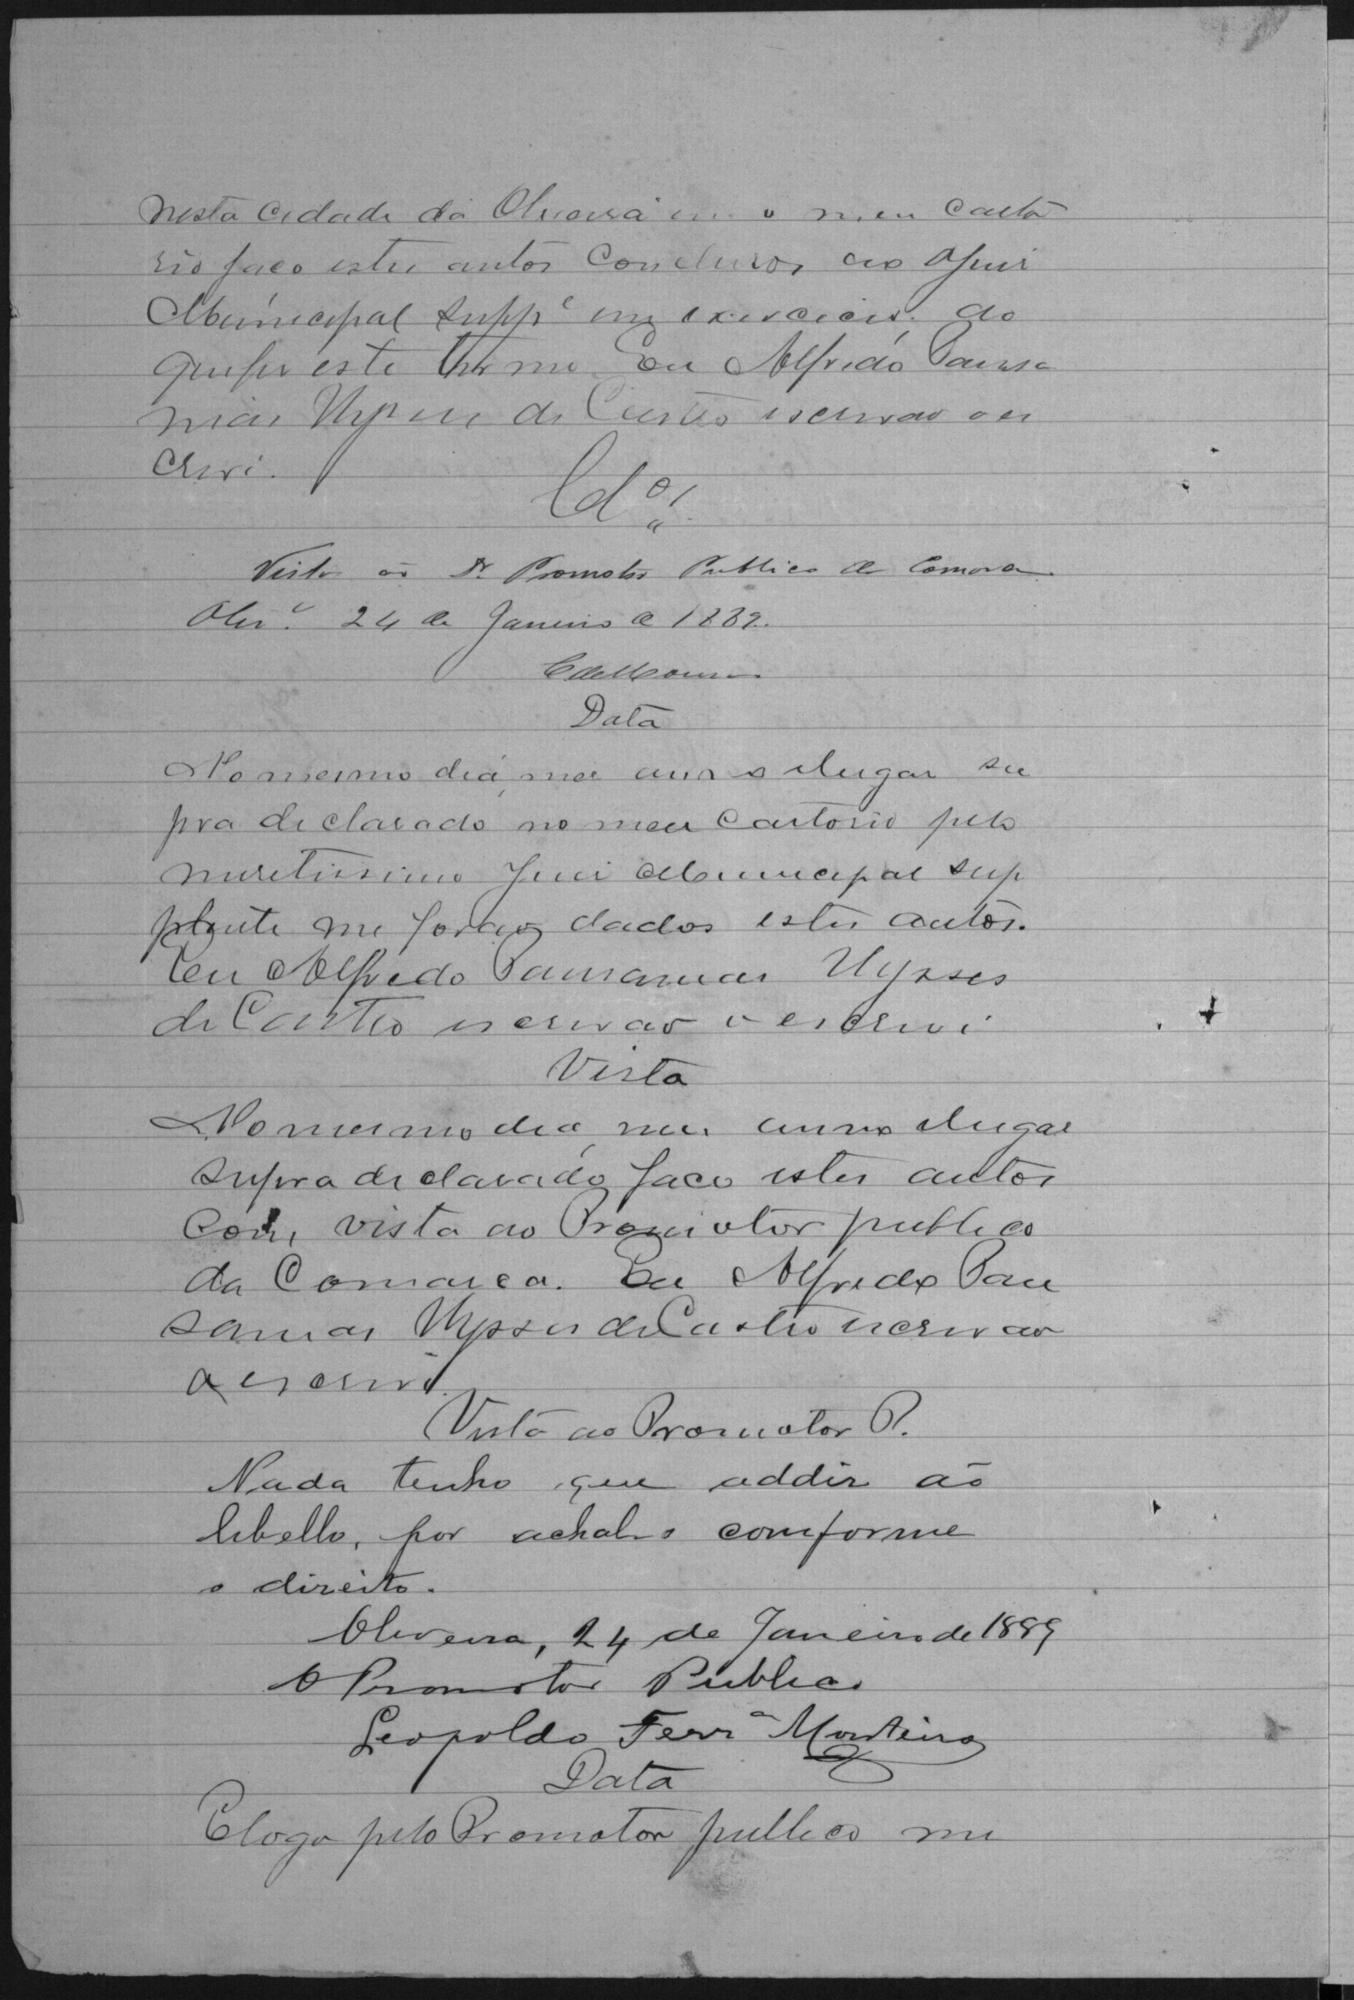 nesta Cidade da Oliveira em o meu Carto
rio faço estes autos Conclusos ao Juis
Municipal Supp.e em exercicio, do
que fis este termo Eu Alfredo Pausa
nias Ulysses de Castro escrivão o es
crevi.
Cl.os
Vista ao Dr. Promotor Publico da Comarca
Olivr.a 24 de Janeiro de 1889.
Data
No mesmo dia, mes anno e lugar su
pra declarado no meu Cartorio pelo
meretissimo Juis Municipal sup
plente me forão dados estes autos.
Eu Alfredo Pausanias Ulysses
de Castro escrivão o escrevi
Vista
No mesmo dia, mes anno e lugar
supra declarado faço estes autos
com vista ao Promotor publico
da Comarca. Eu Alfredo Pau
sanias Ulysses de Castro escrivão
o escrevi.
Vista ao Promotor P.
Nada tenho que addir ao
libello, por achal-o comforme
o direito.
Oliveira, 24 de Janeiro de 1889
O Promotor Publico
Leopoldo Ferr.a Monteiro
Data
E logo pelo Promotor publico me